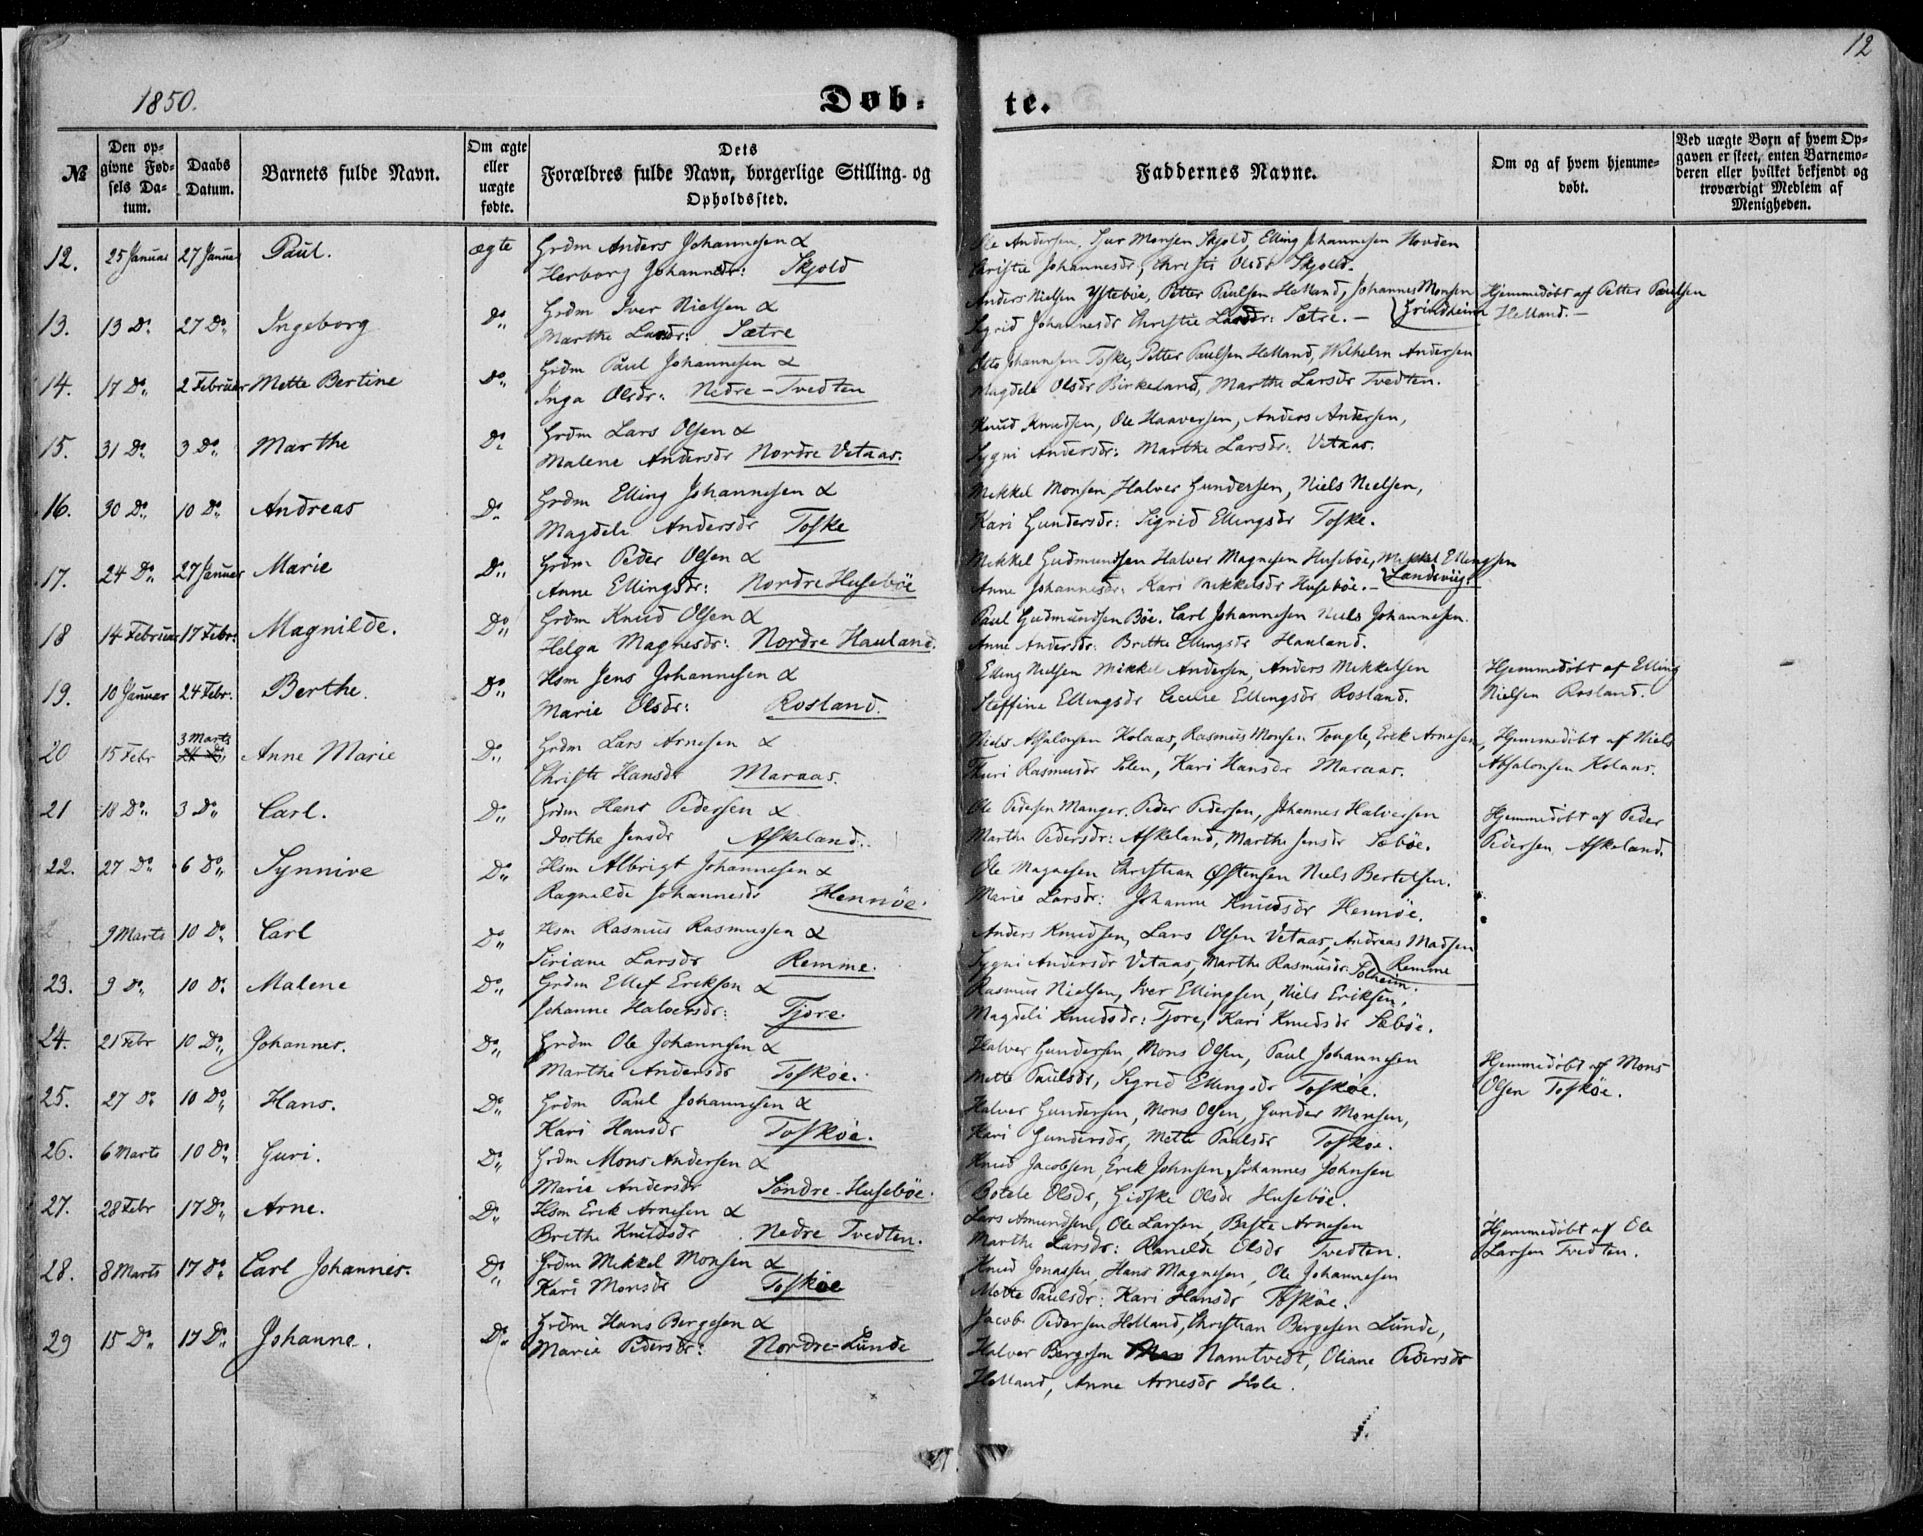 12
1850.
Døb-
te.
№
Den op-
givne Fød-
sels Da-
tum.
Daabs
Datum.
Barnets fulde Navn.
Om ægte
eller
uægte
fødte.
Dets
Forældres fulde Navn, borgerlige Stilling og
Opholdssted.
Faddernes Navne.
Om og af hvem hjemme-
døbt.
Ved uægte Børn af hvem Op-
gaven er skeet, enten Barnemo-
deren eller hvilket bekjendt og
troværdigt Medlem af
Menigheden.
12. 25 Januar 27 Januar Paul. ægte Grdm Anders Johannesen &
Herborg Johannesdr: Skjold
Ole Andersen, Monsen Skjold, Elling Johannesen Hovden
Christie Johannesdr, Christi Olsdr Skjold.
13. 13 Do 27 Do Ingeborg Do Grdm Iver Nielsen &
Marthe Larsdr: Sætre
Anders Nielsen Ystebøe, Petter Paulsen Helland, Johannes Monsen
Sigrid Johannesdr Christie Larsdr: Sætre. — Grindheim
Hjemmedøbt af Petter Paulsen
Helland. —
14. 17 Do 2 Februar Mette Bertine Do Grdm Paul Johannesen &
Inga Olsdr: Nedre-Tvedten
Johannesen Toske, Petter Paulsen Helland, Wilhelm Andersen
Magdele Olsdr Birkeland, Marthe Larsdr Tvedten.
15. 31 Do 3 Do Marthe Do Grdm Lars Olsen &
Malene Andersdr Nordre Vetaas.
Knud Knudsen, Ole Haaversen, Anders Andersen,
Sygni Andersdr: Marthe Larsdr: Vetaas.
16. 30 Do 10 Do Andreas Do Grdm Elling Johannesen &
Magdeli Andersdr Toske
Mekkel Monsen, Halver Gundersen, Niels Nielsen,
Kari Gundersdr: Sigrid Ellingsdr Toske.
17. 24 Do 27 Januar Marie Do Grdm Peder Olsen &
Anne Ellingsdr: Nordre Husebøe
Mekkel Gudmundsen Halver Magnesen Husebøe, Mekkel Ellingsen
Anne Johannesdr: Kari Mekkelsdr Husebøe. — Landsviig
18 14 Februar 17 Febr: Magnilde. Do Grdm Knud Olsen &
Helga Magnesdr: Nordre Hauland.
Paul Gudmundsen Bøe. Carl Johannesen Niels Johannesen.
Anne Andersdr: Brithe Ellingsdr Hauland.
19. 10 Januar 24 Febr. Berthe. Do Hsm Jens Johannesen &
Marie Olsdr: Rosland.
Elling Nielsen Mikkel Andersen, Anders Mekkelsen
Steffine Ellingsdr Cecilie Ellingsdr Rosland.
Hjemmedøbt af Elling
Nielsen Rosland.
20 15 Febr 3 Marts Anne Marie Do Grdm Lars Arnesen &
Christi Hansdr Maraas.
Niels Absalonsen Kolaas, Rasmus Monsen Tougle, Erik Arnesen,
Thuri Rasmusdr Solen, Kari Hansdr Maraas.
Hjemmedøbt af Niels
Absalonsen Kolaas.
21 18 Do 3 Do Carl. Do Grdm Hans Pedersen &
Dorthe Jensdr Askeland.
Ole Pedersen Manger. Peder Pedersen, Johannes Halversen
Marthe Pedersdr: Askeland, Marthe Jensdr Sæbøe.
Hjemmedøbt af Peder
Pedersen Askeland.
22. 27 Do 6 Do Synnive Do Hsm Albrigt Johannesen &
Ragnilde Johannesdr Hennøe.
Ole Magnesen Christian Østensen Niels Bertelsen.
Marie Larsdr: Johanne Knudsdr Hennøe.
9 Marts 10 Do Carl Do Hsm Rasmus Rasmussen &
Siriane Larsdr Remme.
Anders Knudsen, Lars Olsen Vetaas, Andreas Madsen
Sygni Andersdr Vetaas, Marthe Rasmusdr: Solheim. Remme
23. 9 Do 10 Do Malene Do Grdm Ellef Eriksen &
Johanne Halversdr: Tjore.
Rasmus Nielsen, Iver Ellingsen, Niels Eriksen.
Magdeli Knudsdr: Tjore, Kari Knudsdr Sæbøe.
24. 21 Febr 10 Do Johannes. Do Grdm Ole Johannesen &
Marthe Andersdr Toskøe.
Halver Gundersen, Mons Olsen, Paul Johannesen
Mette Paulsdr, Sigrid Ellingsdr Toskøe.
Hjemmedøbt af Mons
Olsen Toskøe.
25. 27 Do 10 Do Hans. Do Grdm Paul Johannesen &
Kari Hansdr Toskøe.
Halver Gundersen, Mons Olsen, Gunder Monsen,
Kari Gundersdr, Mette Paulsdr Toskøe.
26. 6 Marts 10 Do Guri. Do Grdm Mons Andersen &
Marie Andersdr Søndre-Husebøe.
Knud Jacobsen, Erik Johnsen, Johannes Johnsen
Botele Olsdr, Gidske Olsdr Husebøe.
27. 28 Febr 17 Do Arne. Do Hsm Erik Arnesen &
Brithe Knudsdr Nedre Tvedten.
Lars Amundsen, Ole Larsen, Arnesen
Marthe Larsdr: Ranilde Olsdr Tvedten.
Hjemmedøbt af Ole
Larsen Tvedten.
28. 8 Marts 17 Do Carl Johannes. Do Grdm Mekkel Monsen &
Kari Monsdr Toskøe
Knud Jonassen, Hans Magnesen, Ole Johannesen
Mette Paulsdr: Kari Hansdr Toskøe.
29 15 Do 17 Do Johanne. Do Grdm Hans Bergesen &
Marie Pedersdr: Nordre-Lunde
Jacob Pedersen Helland, Christian Bergesen Lunde,
Halver Bergesen Namtvedt, Oliane Pedersdr
Helland, Anne Arnesdr Hole.